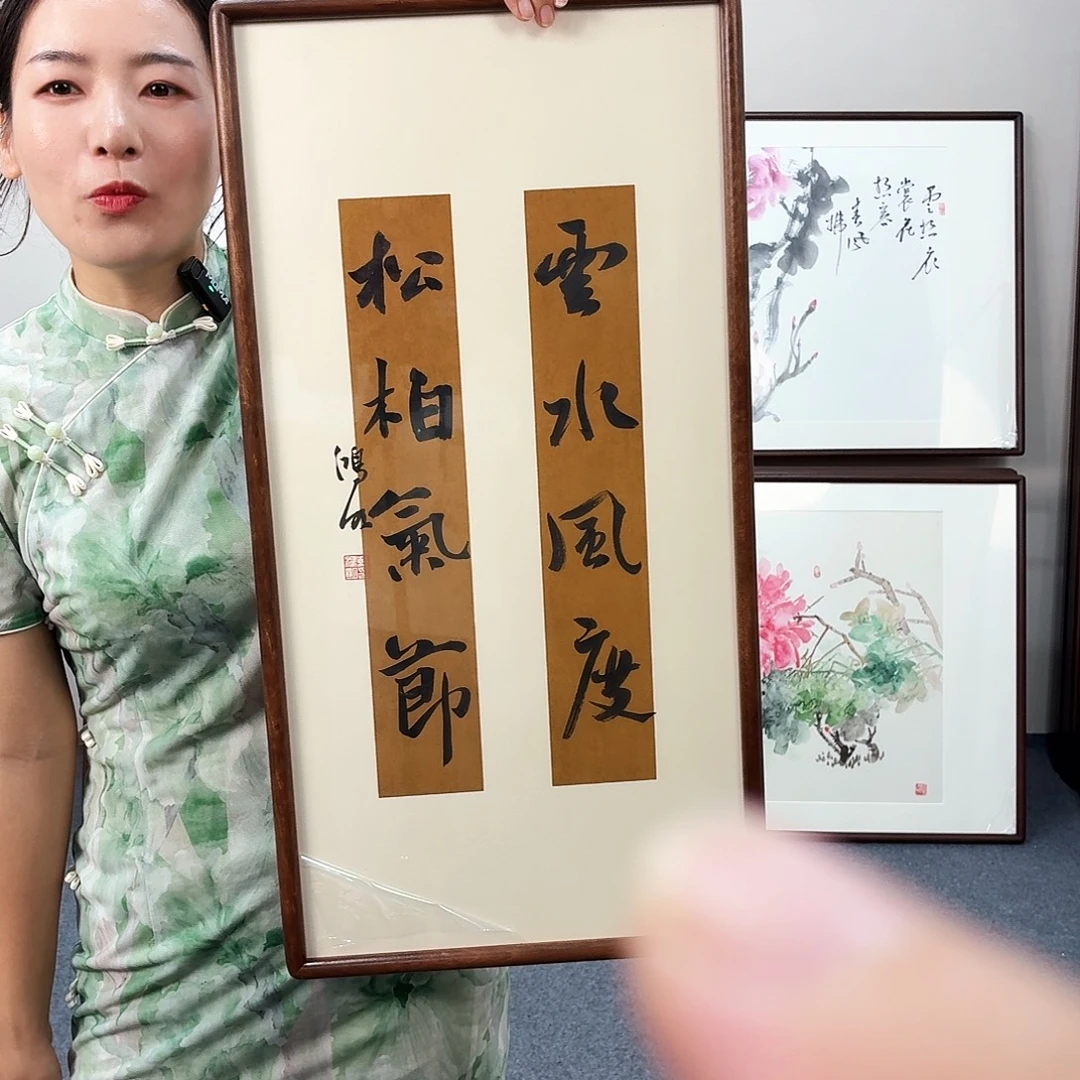 雲水風度
松柏氣節
雲想衣
裳花
想容
春風
拂